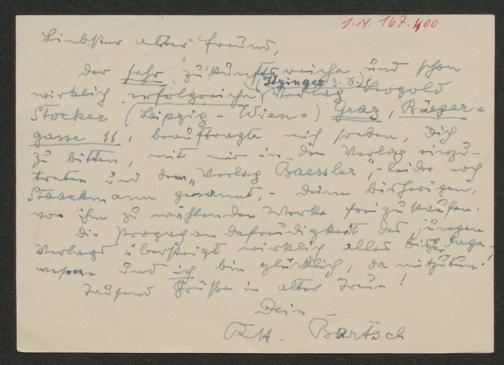 I.N. 167.400
Liebster alter Freund,
Der sehr zukunftsreiche und schon
(Itzinger z. B.!)
wirklich erfolgreiche Verlag Leopold
Stocker (Leipzig - Wien =) Graz, Rueger=
gasse 11, beauftragte mich soeben, Dich
zu bitten, mit mir in den Verlag einzu-
treten und dem „Verlag Baessler", leider noch
Staackmann genannt, - Deine bisherigen,
von ihm zu wählenden Werke freizukaufen.
Die Propagandafreudigkeit des jungen
Verlags übersteigt wirklich alles bisher Dage-
wesene und ich bin glücklich, da mitzutun!
Tausend Grüße in alter Treue!
Dein
R.H. Bartsch